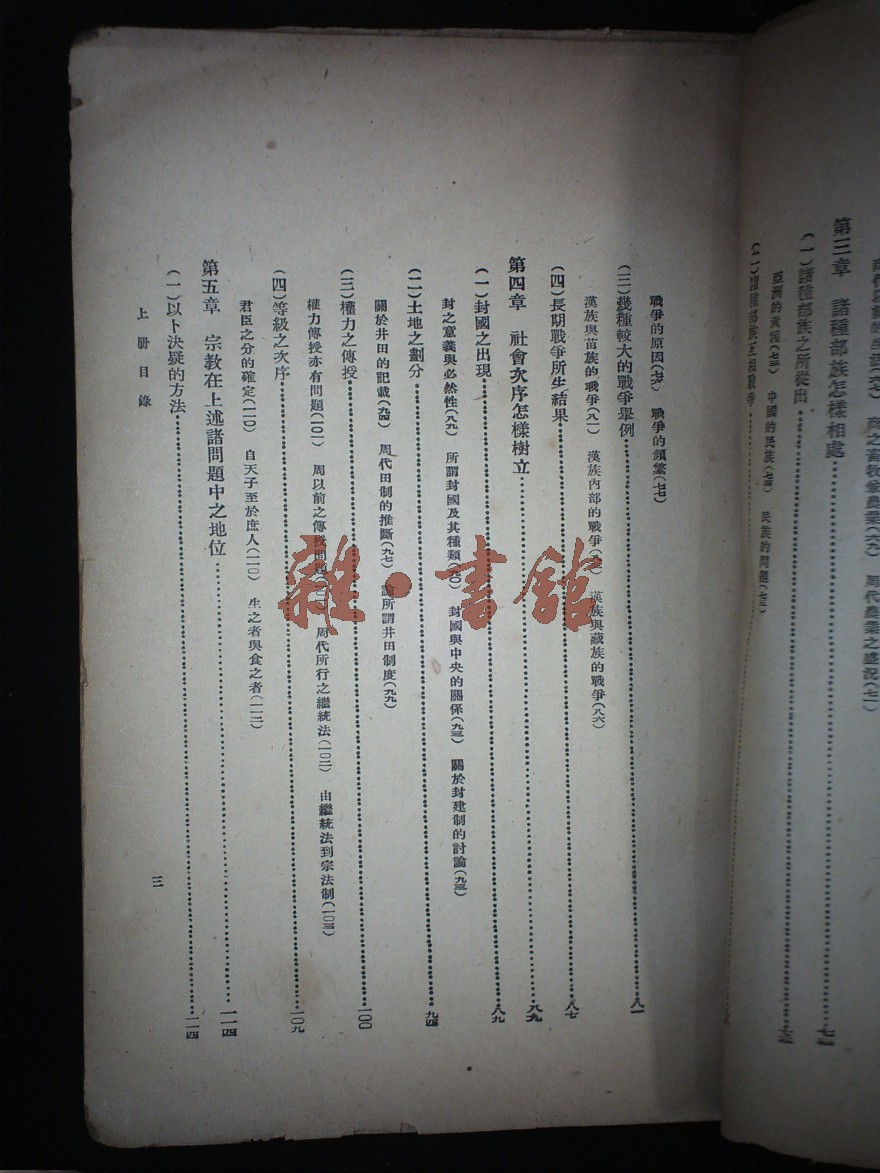 第三章 諸種部族怎樣相處
(一)諸種部族之所從出
亞洲的黃種 中國的民族(七四) 民族的問題(七五)
(二)諸種部族互相戰爭
戰爭的原因(七六) 戰爭的頻繁(七七)
(三)幾種較大的戰爭舉例 八一
漢族與苗族的戰爭(八一) 漢族內部的戰爭 漢族與藏族的戰爭(八六)
(四)長期戰爭所生結果 八七
第四章 社會次序怎樣樹立 八九
(一)封國之出現 八九
封之意義與必然性(八九) 所謂封國及其種類(九〇) 封國與中央的關係(九三) 關於封建制的討論(九三)
(二)土地之劃分 九四
關於井田的記載(九四) 周代田制的推斷(九七) 論所謂井田制度(九九)
(三)權力之傳授 一〇〇
權力傳授亦有問題(一〇一) 周以前之傳授問題 周代所行之繼統法(一〇二) 由繼統法到宗法制(一〇三)
(四)等級之次序 一〇九
君臣之分的確定(一一〇) 自天子至於庶人(一一〇) 生之者與食之者(一一二)
第五章 宗教在上述諸問題中之地位 一一四
(一)以卜決疑的方法 一一四
上冊目錄
三
雜·書館